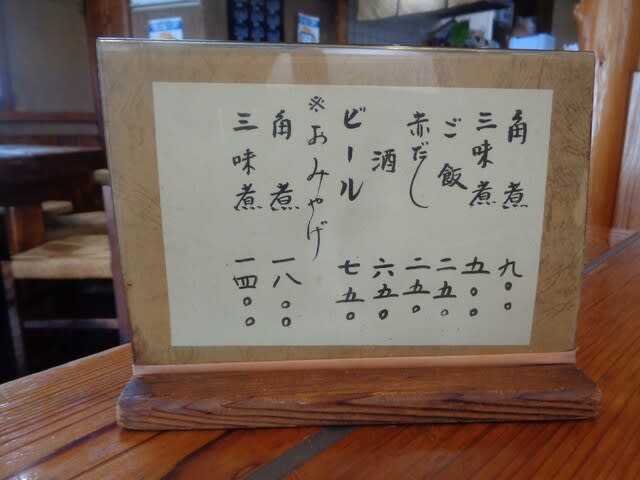 角煮 九〇〇
三味煮 五〇〇
ご飯 二五〇
赤だし 二五〇
酒 六五〇
ビール 七五〇
※おみやげ
角煮 一八〇〇
三味煮 一四〇〇